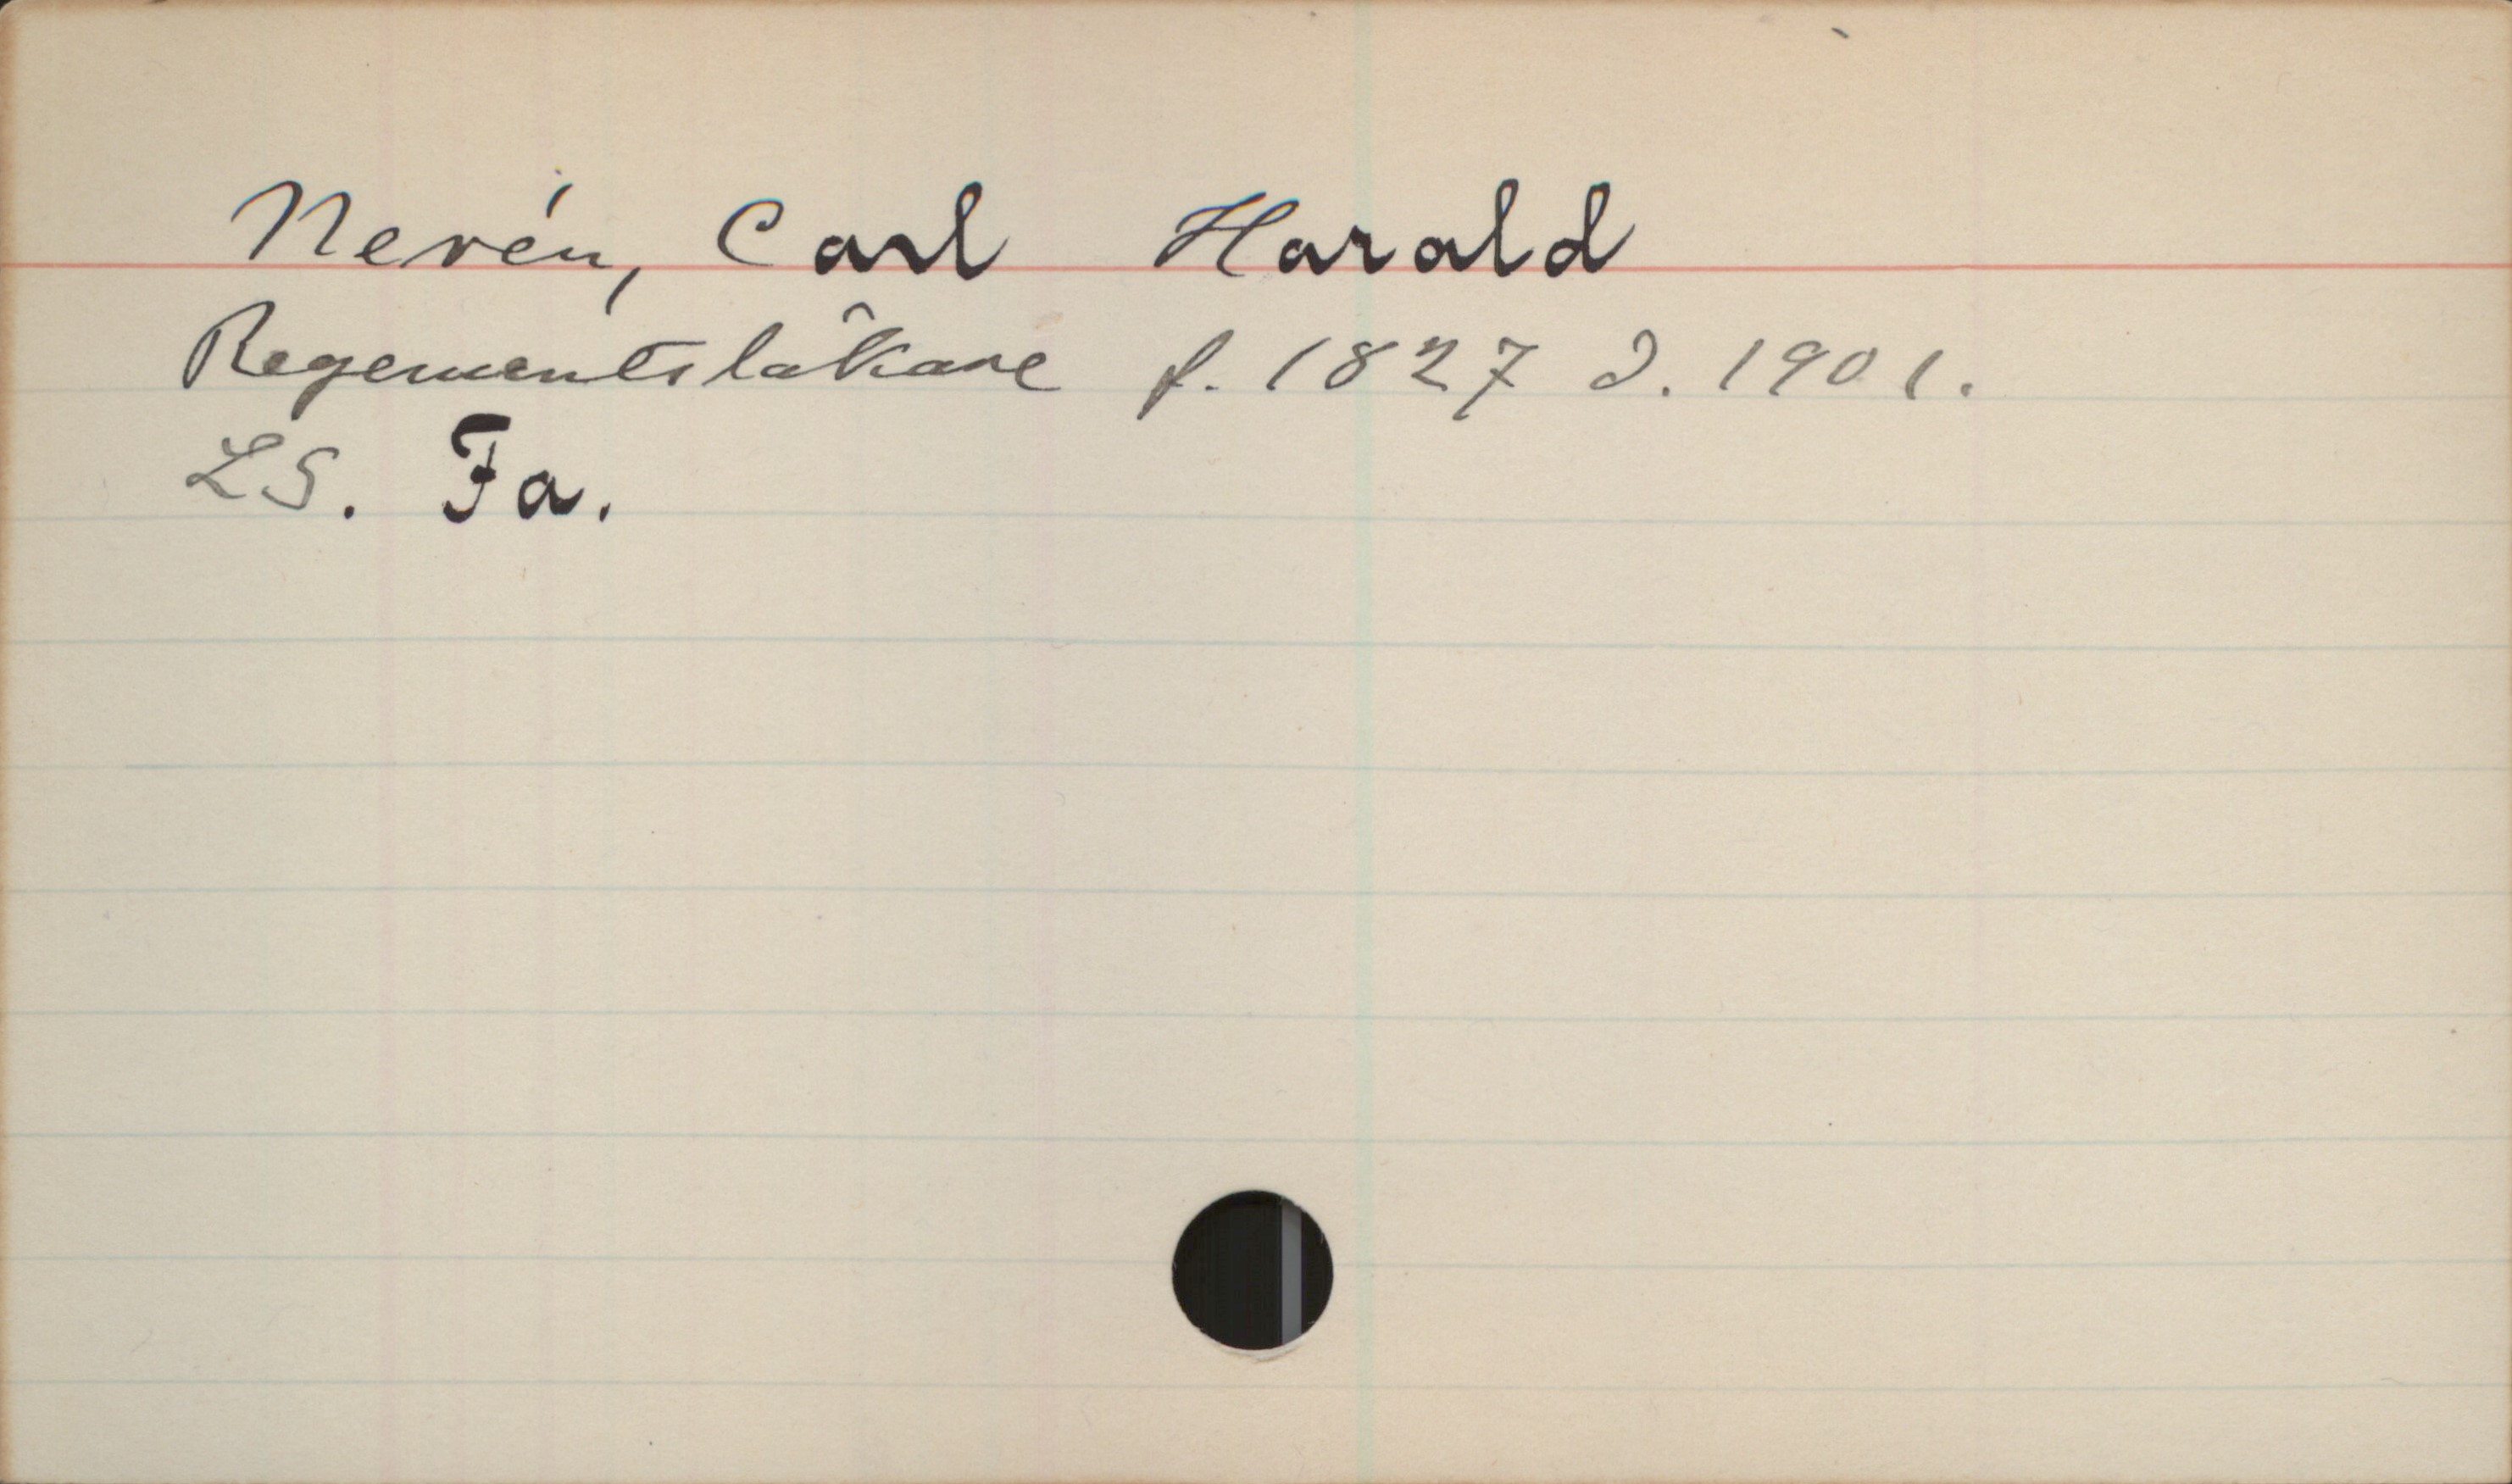 Nerén, Carl Harald
Regementsläkare f. 1827 d. 1901.
LS. Fa.